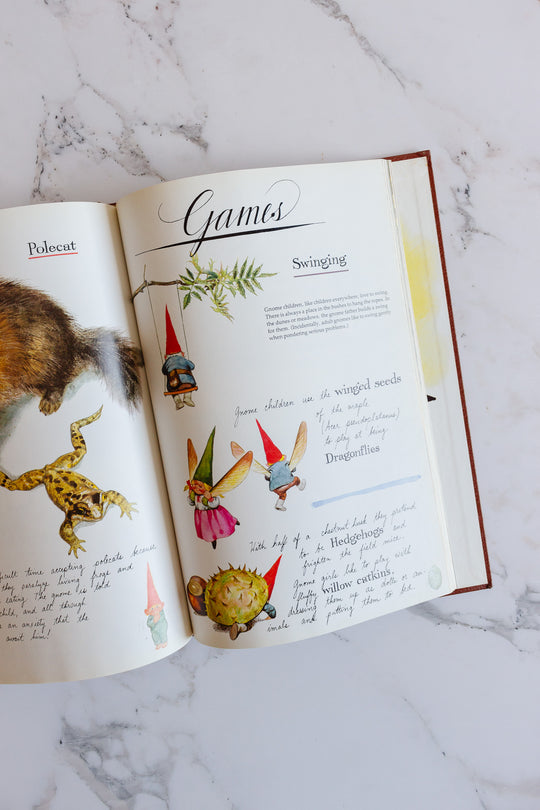 Polecat
icult time accepting polecats because
they paralyze living frogs and
eating. The gnome is told
child, and all through
s an anxiety that the
await him!
Games
Swinging
Gnome children, like children everywhere, love to swing.
There is always a place in the bushes to hang the ropes. In
the dunes or meadows, the gnome father builds a swing
for them. (Incidentally, adult gnomes like to swing gently
when pondering serious problems.)
Gnome children use the winged seeds
of the maple
(Acer pseudoplatanus)
to play at being
Dragonflies
With half of a chestnut husk they pretend
to be Hedgehogs and
frighten the field mice.
Gnome girls like to play with
fluffy willow catkins,
dressing them up as dolls or an-
imals and putting them to bed.